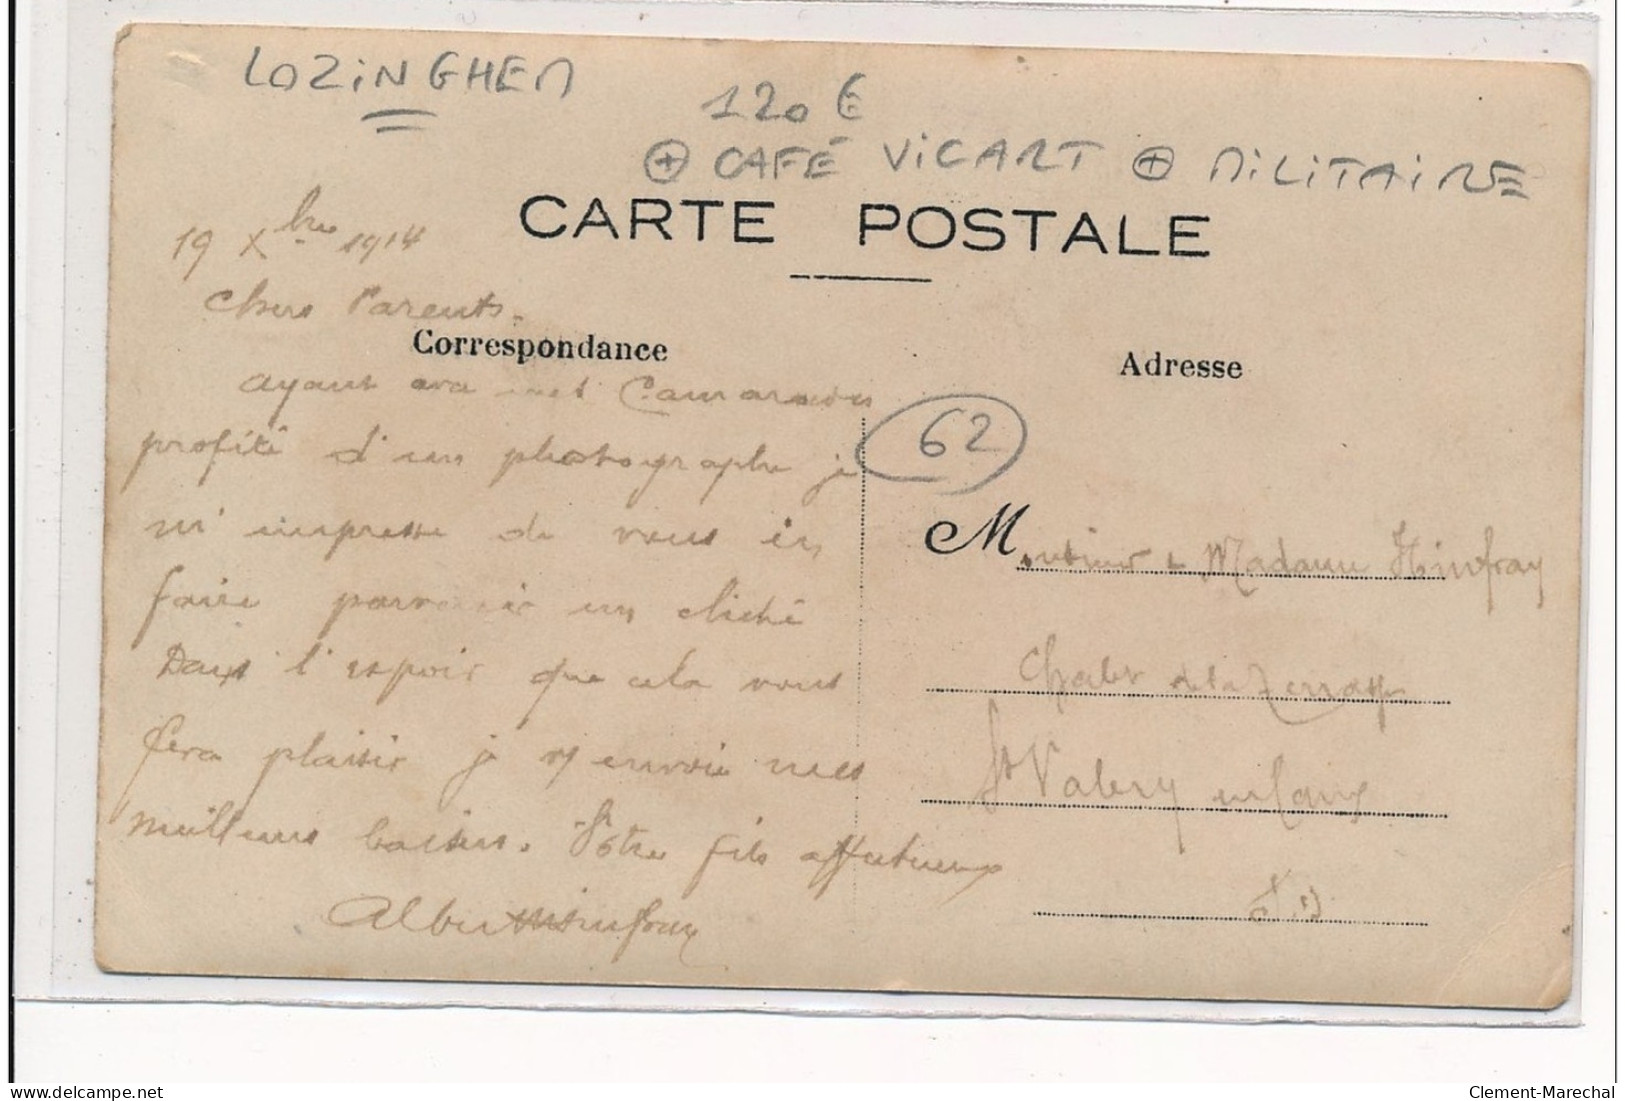 LOZINGHEM
120 €
⊕ CAFÉ VICART ⊕ MILITAIRE
CARTE POSTALE
19 Xbre 1914
Chers Parents.
Correspondance
Adresse
ayant avec mes Camarades
profité d'un photographe je
62
m'impresse de vous en
M. onsieur & Madame Hinfray
faire parvenir un cliché
Dans l'espoir que cela vous
Chalet de la Terrasse
fera plaisir je v/ envoie mes
St Valery en Caux
meilleurs baisers. Votre fils affectueux
S. I.
Albert Hinfray
delcampe.net
Clement-Marechal